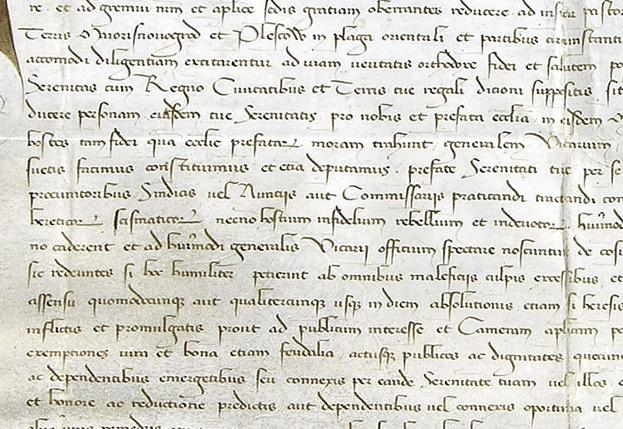 re. et ad gremiu nrm et aplice sedis gratiam oberrantes reducere. ad
Terris Worsnovogrod et Plescovo in plaga orientali et partibus
accomodi diligentiam excitarentur ad viam veritatis orthodoxe fidei et salutem
Serenitas cum Regno Civitatibus et Terris tue regali dicioni suppositis.
ducere personam eiusdem tue Serenitatis pro nobis et prefata ecclia. in eisdem
hostes tam fidei qua ecclie prefatar moram trahunt. generalem Vicarium
facimus constituimus et etia deputamus. prefate Serenitati tue per se
procuratoribus Sindicis vel Nuntiis aut Commissariis praticandi tractandi
hereticor. scismaticor. necno hostium infidelium rebellium et indevotor.
no caderent et ad huiusmodi generalis Vicarii officium spectare noscuntur de
sic redeuntes si hoc humiliter petierint ab omnibus maleficiis culpis excessibus et
assensu quomodocunq aut qualitercunq usq in diem absolutionis etiam si heresis
inflictis et promulgatis prout ad publicum interesse et Cameram aplicam
exemptiones vita et bona etiam feudalia. actusq publicos ac dignitates
ac dependentibus emergetibus seu connexis per eande Serenitate tuam vel illos
et honore ac reductione predictis aut dependentibus vel connexis oportuna vel